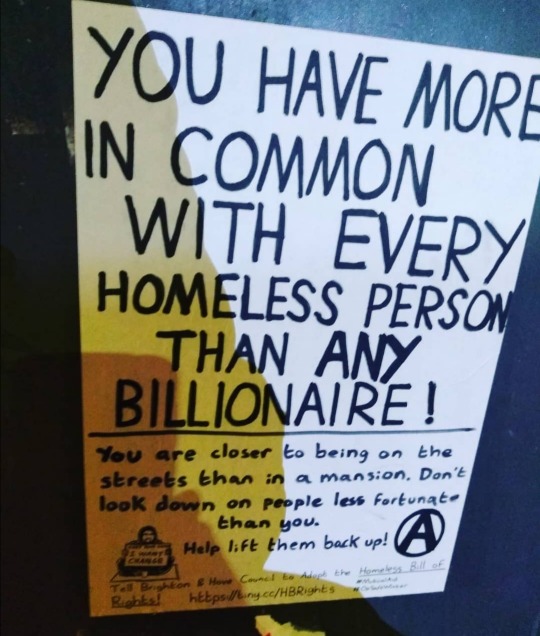 YOU HAVE MORE
IN COMMON
WITH EVERY
HOMELESS PERSON
THAN ANY
BILLIONAIRE!
You are closer to being on the
streets than in a mansion. Don't
look down on people less fortunate
than you.
Help lift them back up!
A
I WANT
CHANGE
Tell Brighton & Hove Council to Adopt the Homeless Bill of
Rights! https://tiny.cc/HBRights